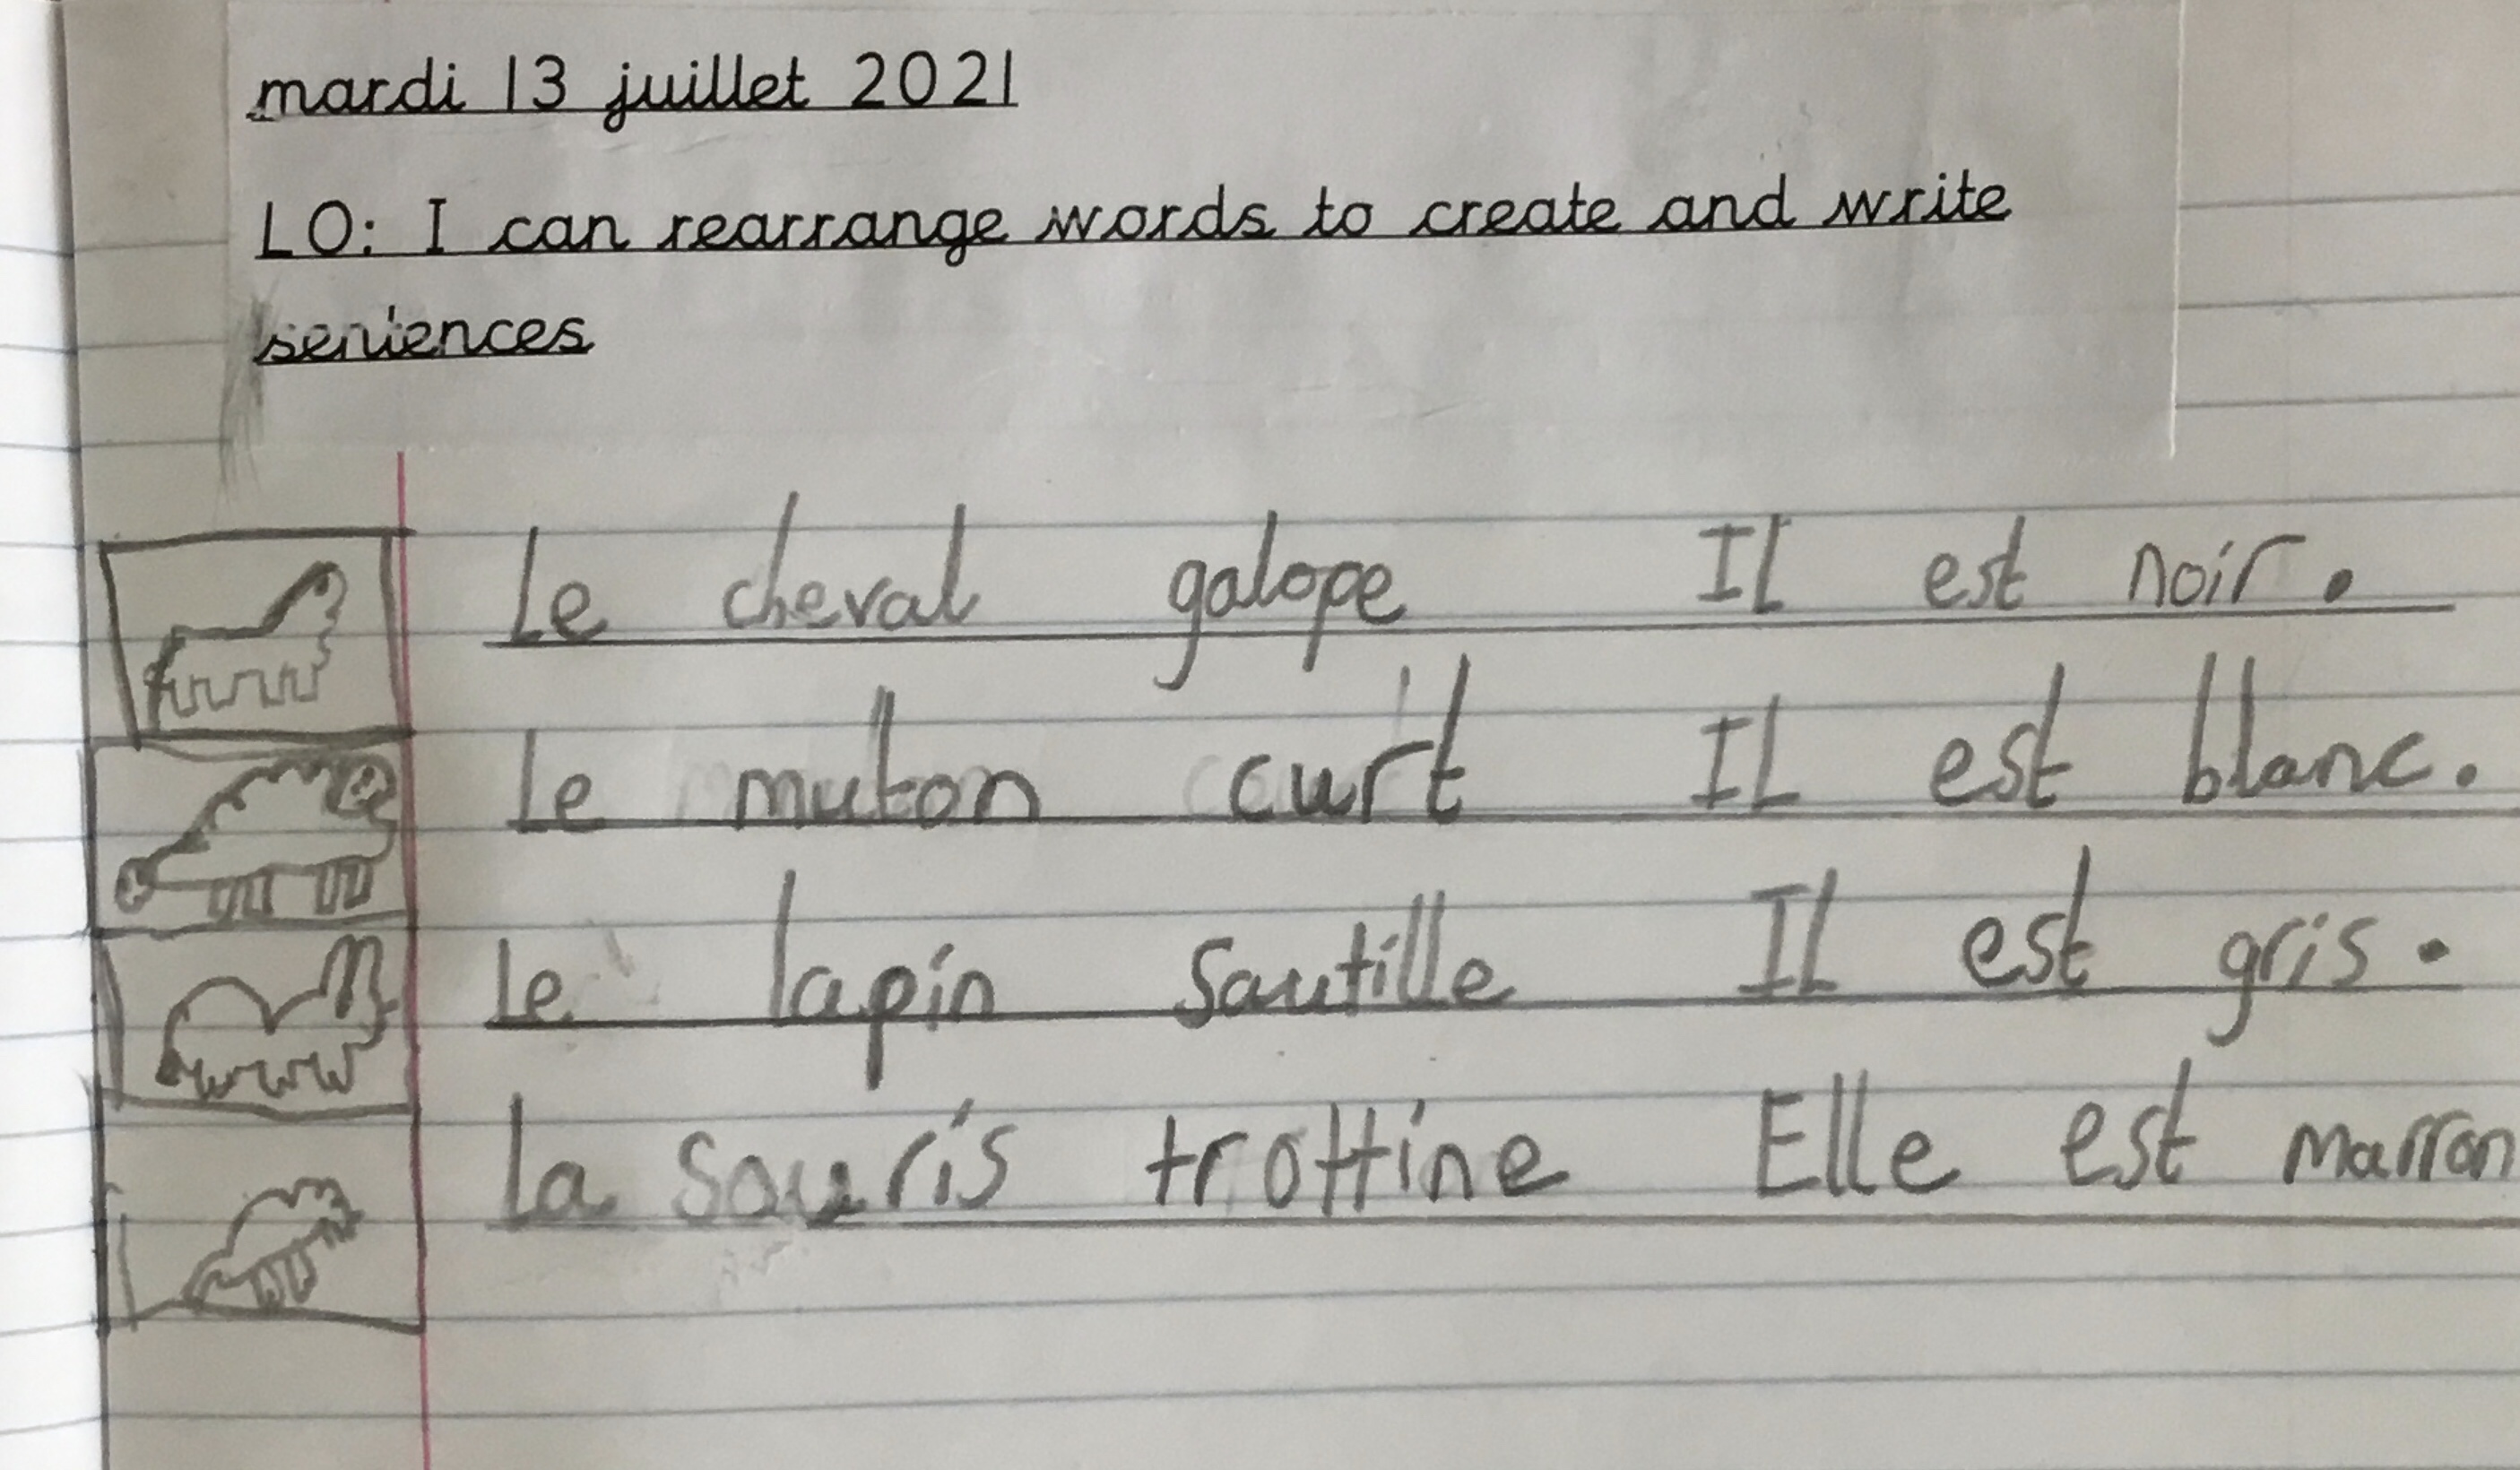 mardi 13 juillet 2021
LO: I can rearrange words to create and write
sentences
Le cheval galope Il est noir.
Le muton curt Il est blanc.
Le lapin sautille Il est gris.
La souris trottine Elle est marron